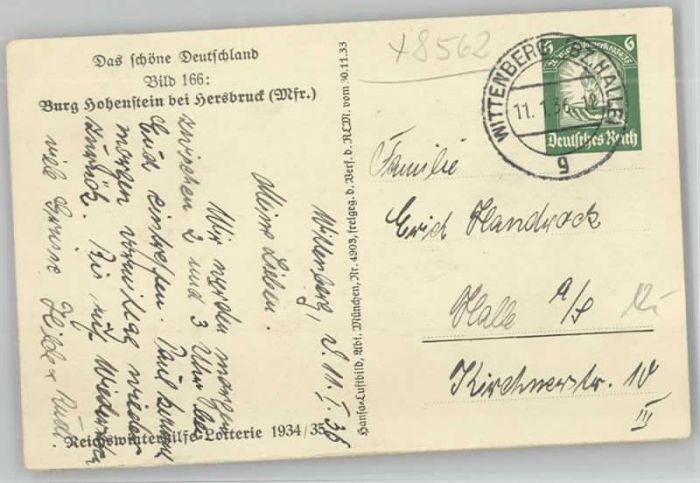 Das schöne Deutschland
Bild 166:
Burg Hohenstein bei Hersbruck (Mfr.)
Wittenberg, d. 11. I. 36
Meine Lieben.
Wir werden morgen
zwischen 2 und 3 Uhr bei
Euch eintreffen. Paul
morgen wieder
zurück. Bis auf Wiedersehen
viele Grüsse Hilde u. Rudi.
Reichswinterhilfe-Lotterie 1934/35
Hansa-Luftbild, Abt. München, Nr. 4903, freigeg. d. Verf. d. RLM. vom 30.11.33
+8562
WITTENBERG BZ. HALLE
11.1.36. 12
g
6 6
Deutsches Reich
Familie
Erich Handrock
Halle a/S
Kirchnerstr. 10
III